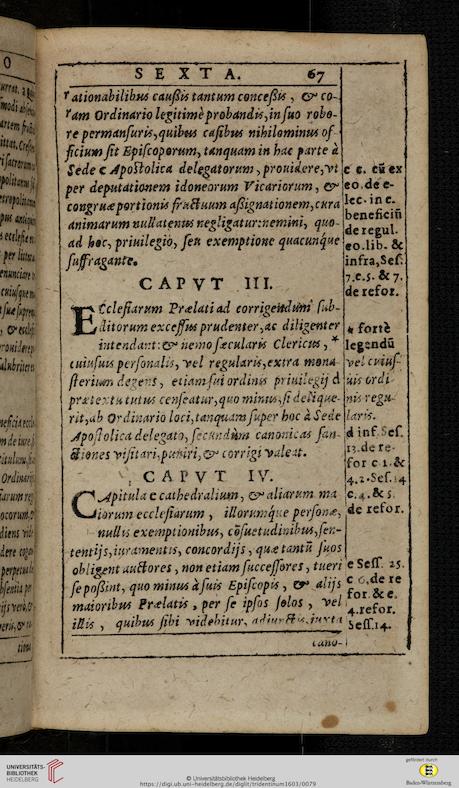 SEXTA. 67
rationabilibus caußis tantum conceßis, & co-
ram Ordinario legitimè probandis, in suo robo-
re permansuris, quibus casibus nihilominus of-
ficium sit Episcoporum, tanquam in hac parte à
Sede c Apostolica delegatorum, prouidere, vt
per deputationem idoneorum Vicariorum, &
congruæ portionis fructuum aßignationem, cura
animarum nullatenus negligatur: nemini, quo-
ad hoc, priuilegio, seu exemptione quacunque
suffragante.
c c. cū ex
eo. de e-
lec. in c.
beneficiū
de regul.
eo. lib. &
infra, Ses.
7. c. 5. & 7.
de refor.
CAPVT III.
ECclesiarum Prælati ad corrigendum sub-
ditorum excessus prudenter, ac diligenter
intendant: & nemo sæcularis Clericus, *
cuiusuis personalis, vel regularis, extra mona
sterium degens, etiam sui ordinis priuilegij d
prætextu tutus censeatur, quo minus, si delique-
rit, ab Ordinario loci, tanquam super hoc à Sede
Apostolica delegato, secundùm canonicas san-
ctiones visitari, puniri, & corrigi valeat.
* fortè
legendū
vel cuius-
uis ordi
nis regu-
laris.
d inf. Ses.
13. de re-
for c 1. &
4. 2. Ses. 14
c. 4. & 5.
de refor.
CAPVT IV.
CApitula e cathedralium, & aliarum ma
iorum ecclesiarum, illorumque personæ,
nullis exemptionibus, cōsuetudinibus, sen-
tentijs, iuramentis, concordijs, quæ tantū suos
obligent auctores, non etiam successores, tueri
se poßint, quo minus à suis Episcopis, & alijs
maioribus Prælatis, per se ipsos solos, vel
illis, quibus sibi videbitur, adiunctis, iuxta
e Sess. 25.
c 6. de re
for. & c.
4. refor.
Sess. 14.
cano-
UNIVERSITÄTS-
BIBLIOTHEK
HEIDELBERG
© Universitätsbibliothek Heidelberg
https://digi.ub.uni-heidelberg.de/diglit/tridentinum1603/0079
gefördert durch
Baden-Württemberg